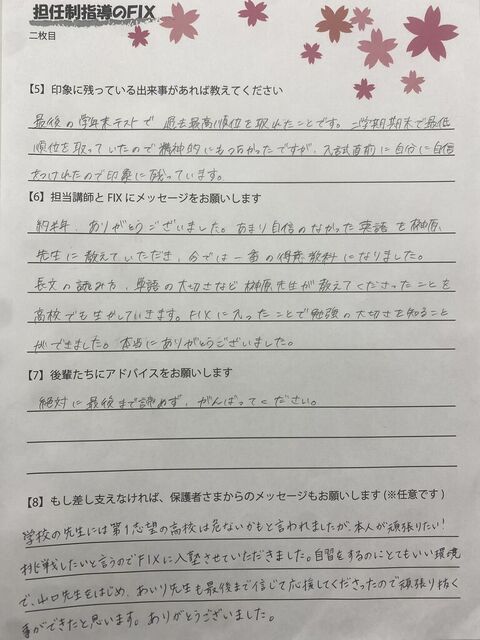 担任制指導のFIX
二枚目
【5】印象に残っている出来事があれば教えてください
最後の学年末テストで 過去最高順位を取れたことです。2学期期末で最低
順位を取っていたので精神的にもつらかったですが、入試直前に自分に自信
をつけれたので印象に残っています。
【6】担当講師とFIXにメッセージをお願いします
約半年、ありがとうございました。あまり自信のなかった英語を榊原
先生に教えていただき、今では一番の得意教科になりました。
長文の読み方、単語の大切さなど榊原先生が教えてくださったことを
高校でも生かしていきます。FIXに入ったことで勉強の大切さを知ること
ができました。本当にありがとうございました。
【7】後輩たちにアドバイスをお願いします
絶対に最後まで諦めず、がんばってください。
【8】もし差し支えなければ、保護者さまからのメッセージもお願いします(※任意です)
学校の先生には第1志望の高校は危ないかもと言われましたが、本人が頑張りたい!
挑戦したいと言うのでFIXに入塾させていただきました。自習をするのにとてもいい環境
で、山口先生をはじめ、あいり先生も最後まで信じて応援してくださったので頑張り抜く
事ができたと思います。ありがとうございました。